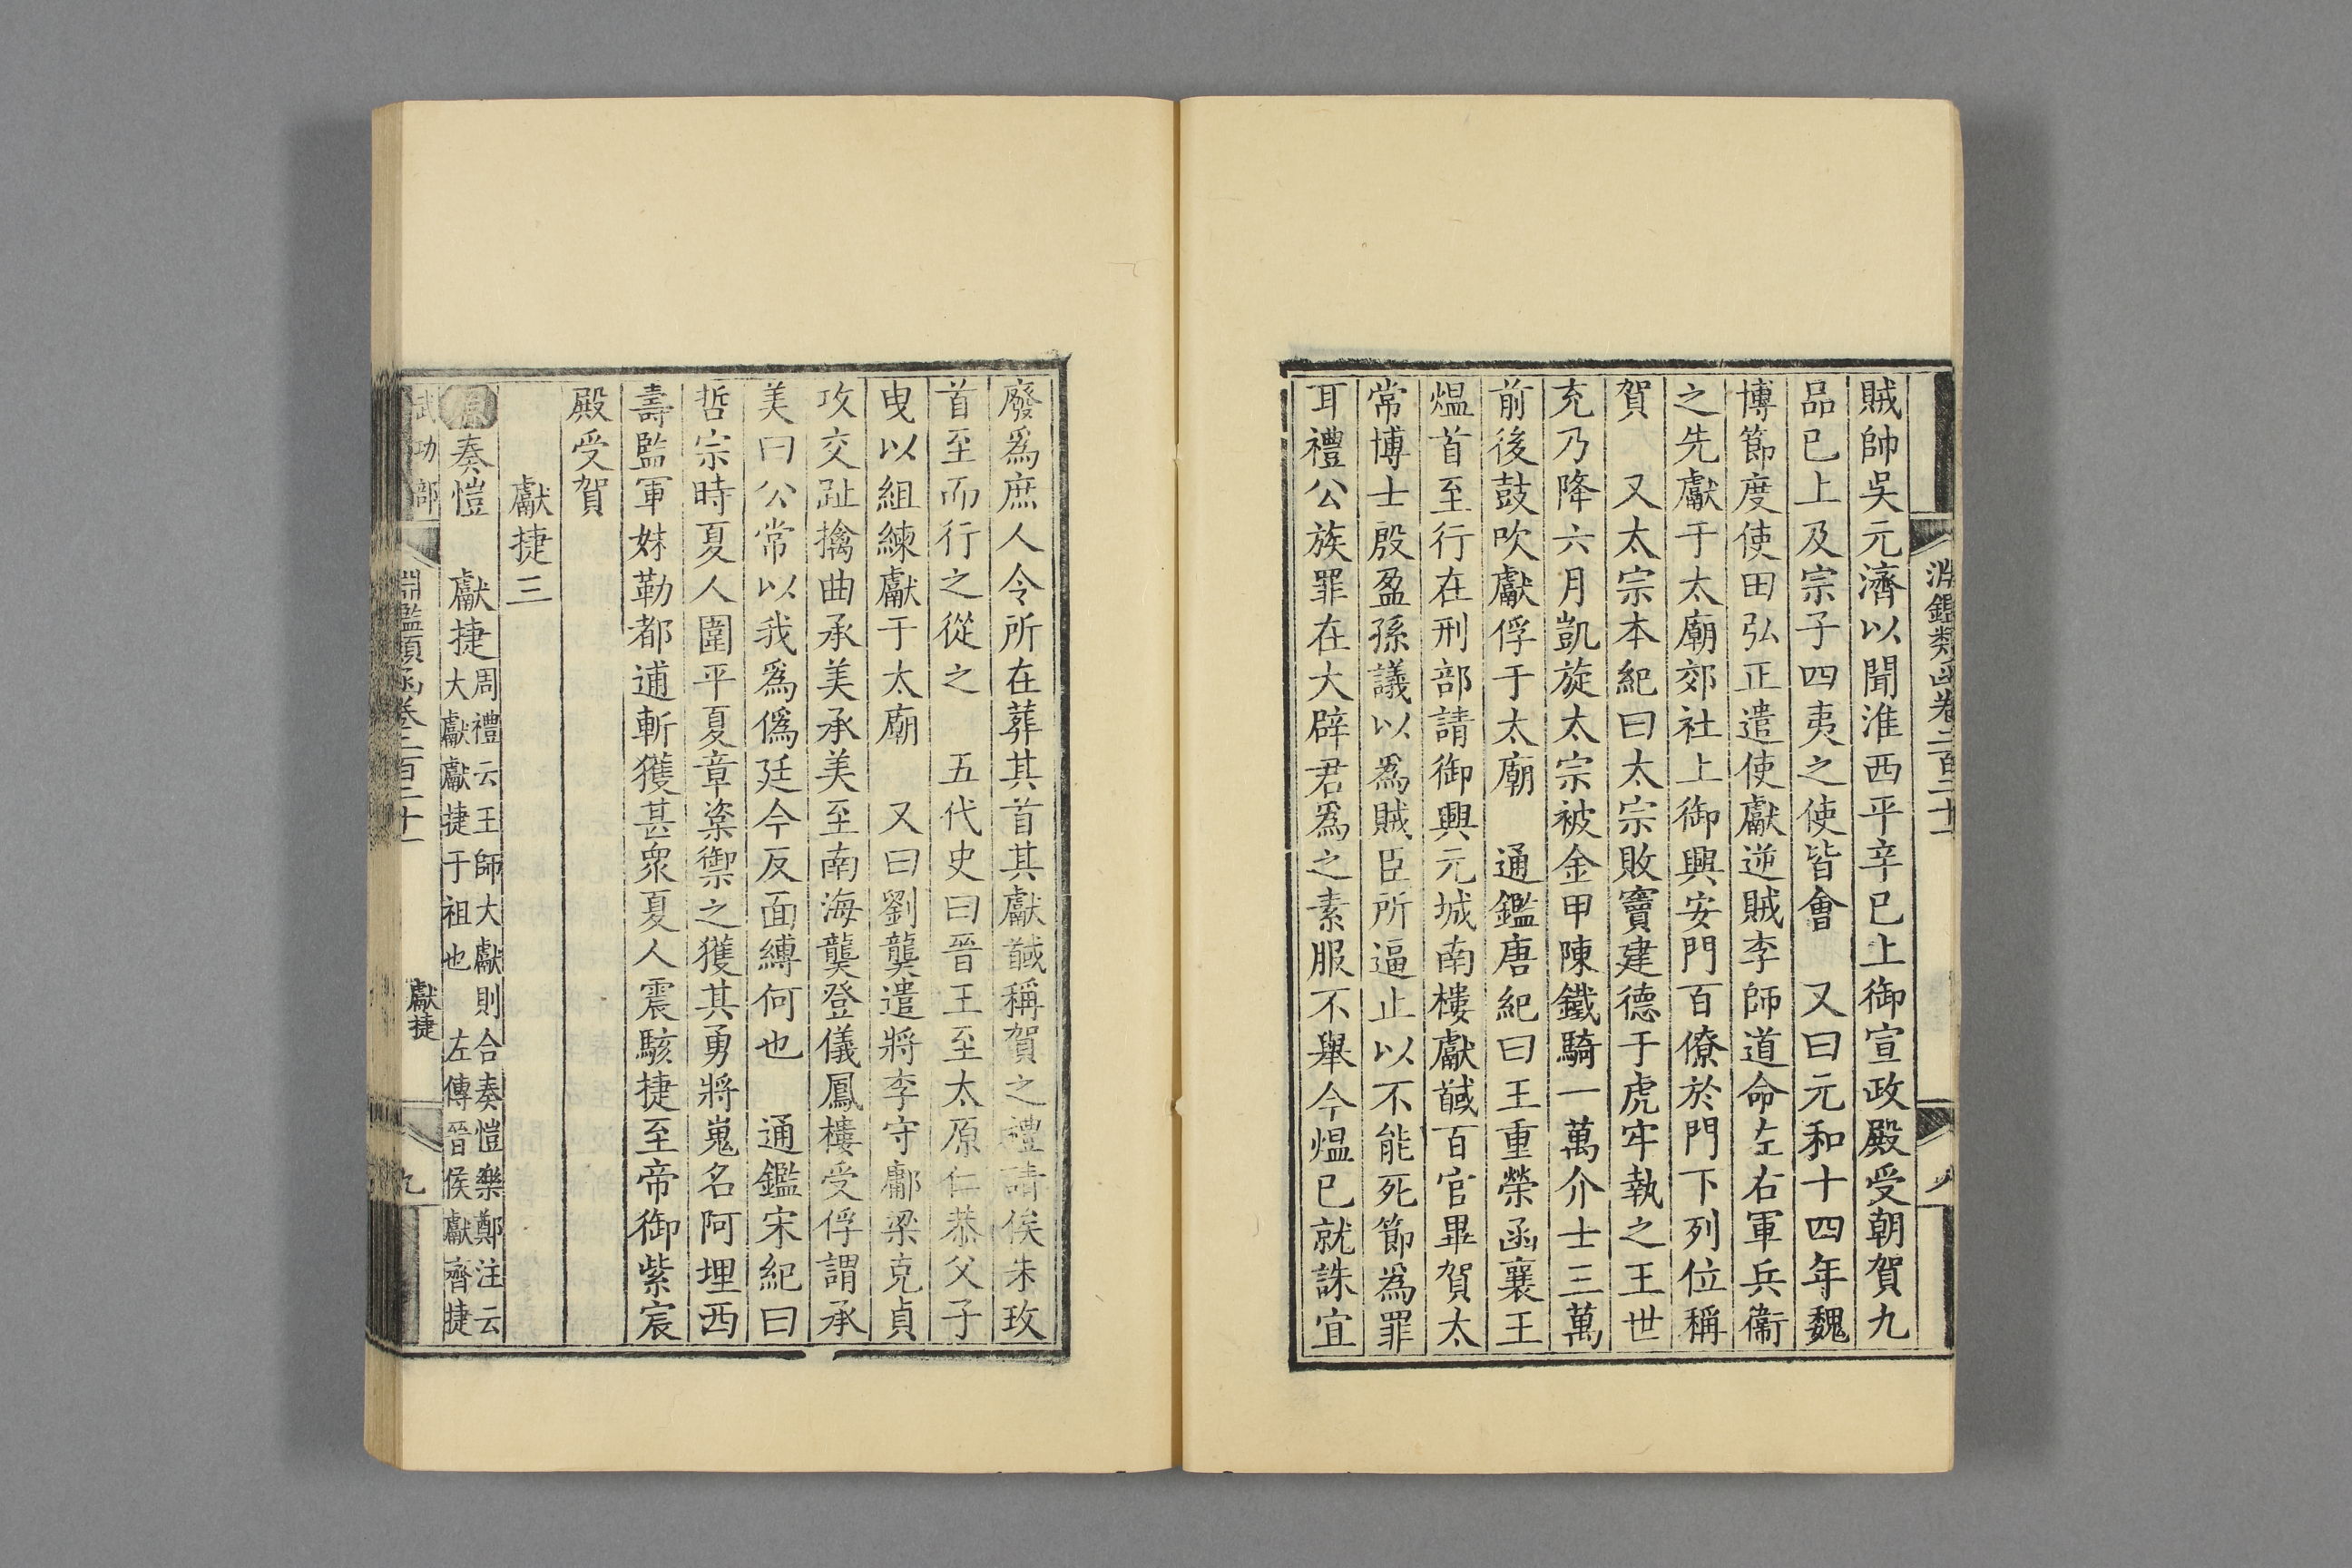 淵鑑類函卷二百二十一
賊帥吳元濟以聞淮西平辛巳上御宣政殿受朝賀九
品已上及宗子四夷之使皆會　又曰元和十四年魏
博節度使田弘正遣使獻逆賊李師道命左右軍兵衞
之先獻于太廟郊社上御興安門百僚於門下列位稱
賀　又太宗本紀曰太宗敗竇建德于虎牢執之王世
充乃降六月凱旋太宗被金甲陳鐵騎一萬介士三萬
前後鼓吹獻俘于太廟　通鑑唐紀曰王重榮函襄王
熅首至行在刑部請御興元城南樓獻馘百官畢賀太
常博士殷盈孫議以爲賊臣所逼止以不能死節爲罪
耳禮公族罪在大辟君爲之素服不舉今熅已就誅宜
廢爲庶人令所在葬其首其獻馘稱賀之禮請俟朱玫
首至而行之從之　五代史曰晉王至太原仁恭父子
曳以組練獻于太廟　又曰劉龑遣將李守鄘梁克貞
攻交趾擒曲承美承美至南海龑登儀鳳樓受俘謂承
美曰公常以我爲僞廷今反面縛何也　通鑑宋紀曰
哲宗時夏人圍平夏章楶禦之獲其勇將嵬名阿埋西
壽監軍妹勒都逋斬獲甚衆夏人震駭捷至帝御紫宸
殿受賀
獻捷三
原奏愷　獻捷周禮云王師大獻則合奏愷樂鄭注云
大獻獻捷于祖也　左傳晉侯獻齊捷
武功部　淵鑑類函卷二百二十一　獻捷　九